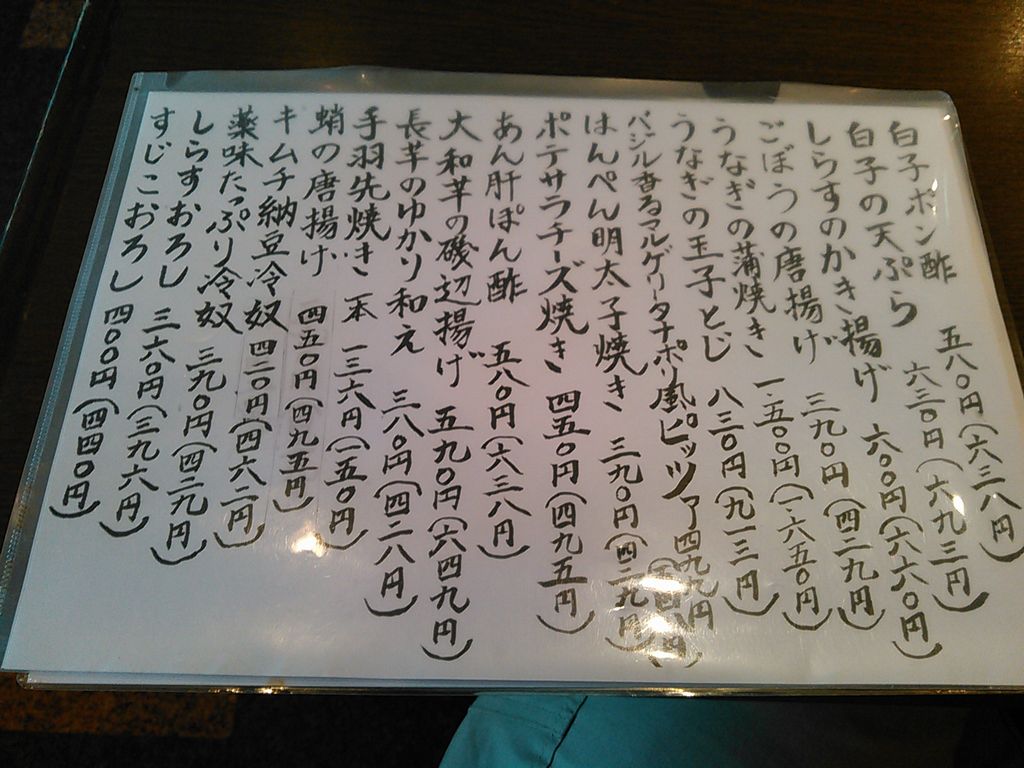 白子ポン酢 五八〇円(六三八円)
白子の天ぷら 六三〇円(六九三円)
しらすのかき揚げ 六〇〇円(六六〇円)
ごぼうの唐揚げ 三九〇円(四二九円)
うなぎの蒲焼き 一、五〇〇円(一、六五〇円)
うなぎの玉子とじ 八三〇円(九一三円)
バジル香るマルゲリータナポリ風ピッツァ 四九九円
はんぺん明太子焼き 三九〇円(四二九円)
ポテサラチーズ焼き 四五〇円(四九五円)
あん肝ぽん酢 五八〇円(六三八円)
大和芋の磯辺揚げ 五九〇円(六四九円)
長芋のゆかり和え 三八〇円(四二八円)
手羽先焼き 一本 一三六円(一五〇円)
蛸の唐揚げ 四五〇円(四九五円)
キムチ納豆冷奴 四二〇円(四六二円)
薬味たっぷり冷奴 三九〇円(四二九円)
しらすおろし 三六〇円(三九六円)
すじこおろし 四〇〇円(四四〇円)